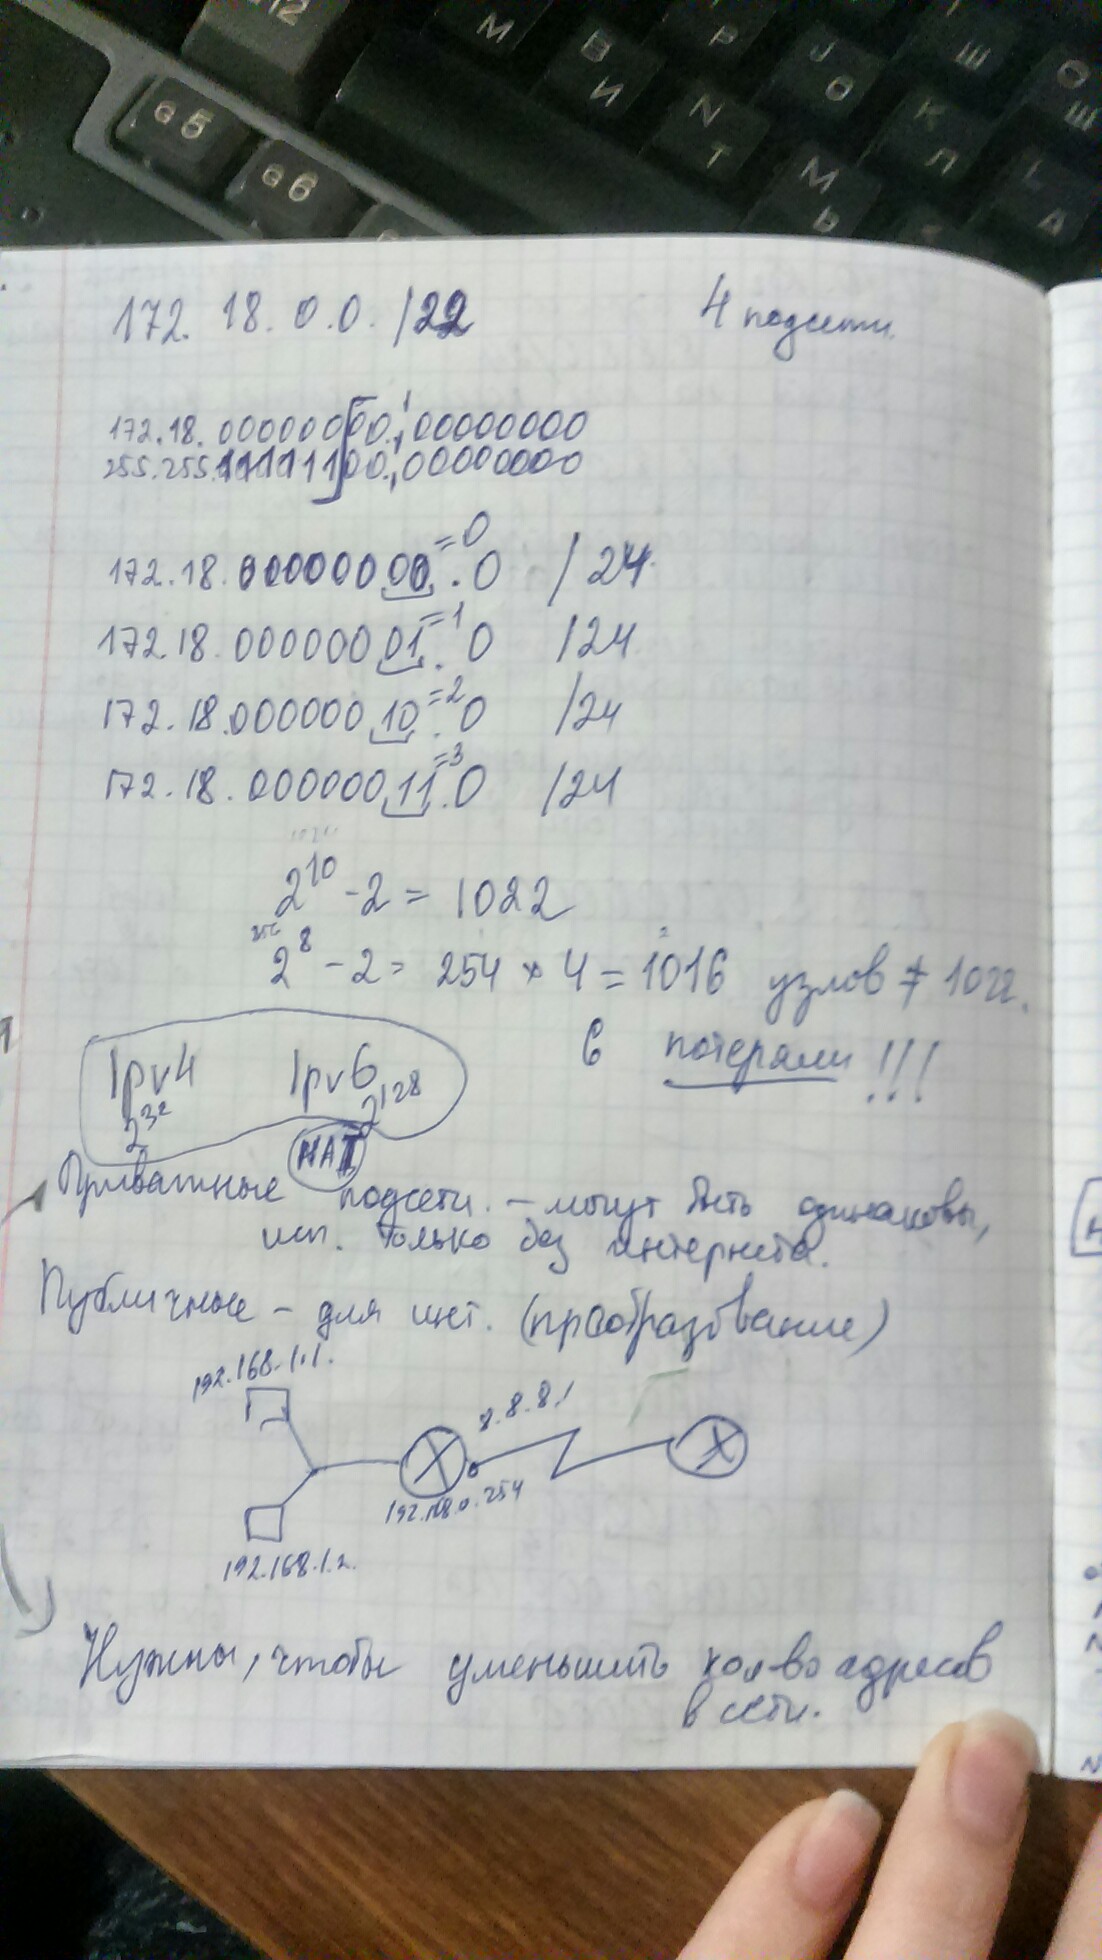 G12
G5
G6
М
В И
Р
J О
Ш
О Щ
N Т
К Л
М Ь
L Д
172. 18. 0.0. /22 4 подсети.
172.18.00000000.00000000
255.255.11111100.00000000
172.18.00000000=0.0 /24
172.18.00000001=1.0 /24
172.18.00000010=2.0 /24
172.18.00000011=3.0 /24
2^10 - 2 = 1022
256
2^8 - 2 = 254 * 4 = 1016 узлов ≠ 1022.
с потерями !!!
Ipv4 Ipv6
2^32 2^128
НАТ
Приватные подсети. - могут быть одинаковы,
исп. только без интернета.
Публичные - для инт. (преобразование)
192.168.1.1.
8.8.8.1
192.168.0.254
192.168.1.2.
Нужны, чтобы уменьшить кол-во адресов
в сети.